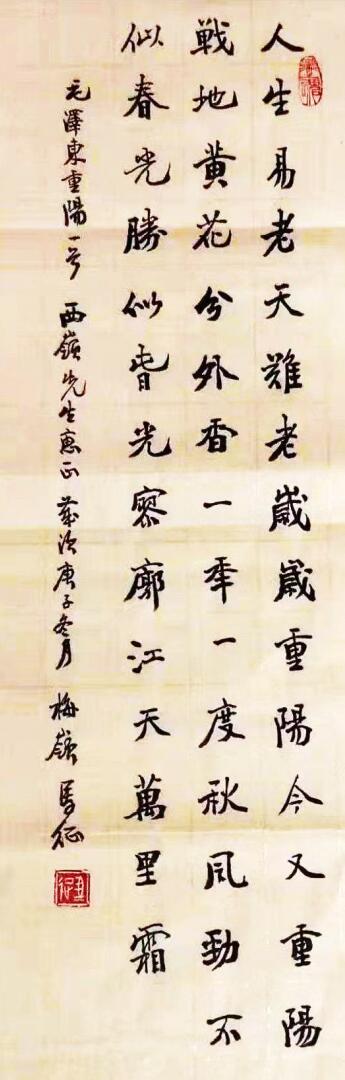 人生易老天難老歲歲重陽今又重陽
戰地黃花分外香一年一度秋風勁不
似春光勝似春光寥廓江天萬里霜
毛澤東重陽一首 西嶺先生惠正 歲次庚子冬月 梅嶺 馬征